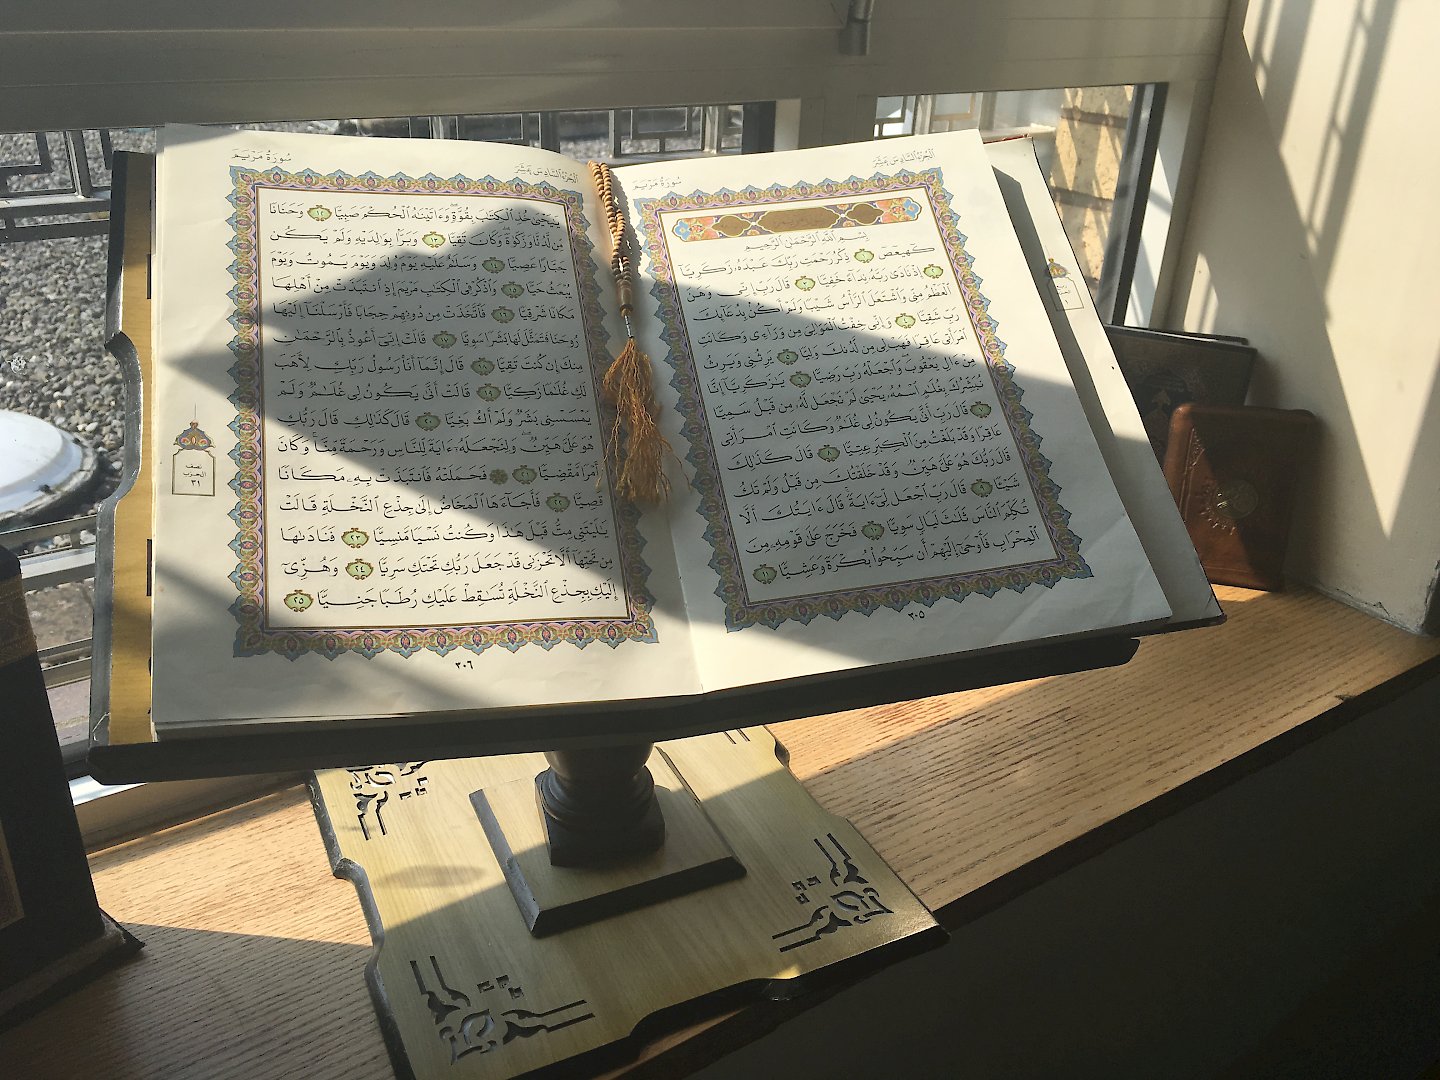 الجُزْءُ السَّادِسَ عَشَرَ
سُورَةُ مَرْيَمَ
بِسْمِ ٱللَّهِ ٱلرَّحْمَٰنِ ٱلرَّحِيمِ
كٓهيعٓصٓ ١ ذِكْرُ رَحْمَتِ رَبِّكَ عَبْدَهُۥ زَكَرِيَّآ
٢ إِذْ نَادَىٰ رَبَّهُۥ نِدَآءً خَفِيًّا ٣ قَالَ رَبِّ إِنِّى وَهَنَ
ٱلْعَظْمُ مِنِّى وَٱشْتَعَلَ ٱلرَّأْسُ شَيْبًا وَلَمْ أَكُنۢ بِدُعَآئِكَ
رَبِّ شَقِيًّا ٤ وَإِنِّى خِفْتُ ٱلْمَوَٰلِىَ مِن وَرَآءِى وَكَانَتِ
ٱمْرَأَتِى عَاقِرًا فَهَبْ لِى مِن لَّدُنكَ وَلِيًّا ٥ يَرِثُنِى وَيَرِثُ
مِنْ ءَالِ يَعْقُوبَ وَٱجْعَلْهُ رَبِّ رَضِيًّا ٦ يَٰزَكَرِيَّآ إِنَّا
نُبَشِّرُكَ بِغُلَٰمٍ ٱسْمُهُۥ يَحْيَىٰ لَمْ نَجْعَل لَّهُۥ مِن قَبْلُ سَمِيًّا
٧ قَالَ رَبِّ أَنَّىٰ يَكُونُ لِى غُلَٰمٌ وَكَانَتِ ٱمْرَأَتِى
عَاقِرًا وَقَدْ بَلَغْتُ مِنَ ٱلْكِبَرِ عِتِيًّا ٨ قَالَ كَذَٰلِكَ
قَالَ رَبُّكَ هُوَ عَلَىَّ هَيِّنٌ وَقَدْ خَلَقْتُكَ مِن قَبْلُ وَلَمْ تَكُ
شَيْـًٔا ٩ قَالَ رَبِّ ٱجْعَل لِّىٓ ءَايَةً قَالَ ءَايَتُكَ أَلَّا
تُكَلِّمَ ٱلنَّاسَ ثَلَٰثَ لَيَالٍ سَوِيًّا ١٠ فَخَرَجَ عَلَىٰ قَوْمِهِۦ مِنَ
ٱلْمِحْرَابِ فَأَوْحَىٰٓ إِلَيْهِمْ أَن سَبِّحُوا۟ بُكْرَةً وَعَشِيًّا ١١
٣٠٥
الجُزْءُ السَّادِسَ عَشَرَ
سُورَةُ مَرْيَمَ
يَٰيَحْيَىٰ خُذِ ٱلْكِتَٰبَ بِقُوَّةٍ وَءَاتَيْنَٰهُ ٱلْحُكْمَ صَبِيًّا ١٢ وَحَنَانًا
مِّن لَّدُنَّا وَزَكَوٰةً وَكَانَ تَقِيًّا ١٣ وَبَرًّۢا بِوَٰلِدَيْهِ وَلَمْ يَكُن
جَبَّارًا عَصِيًّا ١٤ وَسَلَٰمٌ عَلَيْهِ يَوْمَ وُلِدَ وَيَوْمَ يَمُوتُ وَيَوْمَ
يُبْعَثُ حَيًّا ١٥ وَٱذْكُرْ فِى ٱلْكِتَٰبِ مَرْيَمَ إِذِ ٱنتَبَذَتْ مِنْ أَهْلِهَا
مَكَانًا شَرْقِيًّا ١٦ فَٱتَّخَذَتْ مِن دُونِهِمْ حِجَابًا فَأَرْسَلْنَآ إِلَيْهَا
رُوحَنَا فَتَمَثَّلَ لَهَا بَشَرًا سَوِيًّا ١٧ قَالَتْ إِنِّىٓ أَعُوذُ بِٱلرَّحْمَٰنِ
مِنكَ إِن كُنتَ تَقِيًّا ١٨ قَالَ إِنَّمَآ أَنَا۠ رَسُولُ رَبِّكِ لِأَهَبَ
لَكِ غُلَٰمًا زَكِيًّا ١٩ قَالَتْ أَنَّىٰ يَكُونُ لِى غُلَٰمٌ وَلَمْ
يَمْسَسْنِى بَشَرٌ وَلَمْ أَكُ بَغِيًّا ٢٠ قَالَ كَذَٰلِكِ قَالَ رَبُّكِ
هُوَ عَلَىَّ هَيِّنٌ وَلِنَجْعَلَهُۥٓ ءَايَةً لِّلنَّاسِ وَرَحْمَةً مِّنَّا وَكَانَ
أَمْرًا مَّقْضِيًّا ٢١ فَحَمَلَتْهُ فَٱنتَبَذَتْ بِهِۦ مَكَانًا
قَصِيًّا ٢٢ فَأَجَآءَهَا ٱلْمَخَاضُ إِلَىٰ جِذْعِ ٱلنَّخْلَةِ قَالَتْ
يَٰلَيْتَنِى مِتُّ قَبْلَ هَٰذَا وَكُنتُ نَسْيًا مَّنسِيًّا ٢٣ فَنَادَىٰهَا
مِن تَحْتِهَآ أَلَّا تَحْزَنِى قَدْ جَعَلَ رَبُّكِ تَحْتَكِ سَرِيًّا ٢٤ وَهُزِّىٓ
إِلَيْكِ بِجِذْعِ ٱلنَّخْلَةِ تُسَٰقِطْ عَلَيْكِ رُطَبًا جَنِيًّا ٢٥
نصف
الحزب
٣١
٣٠٦